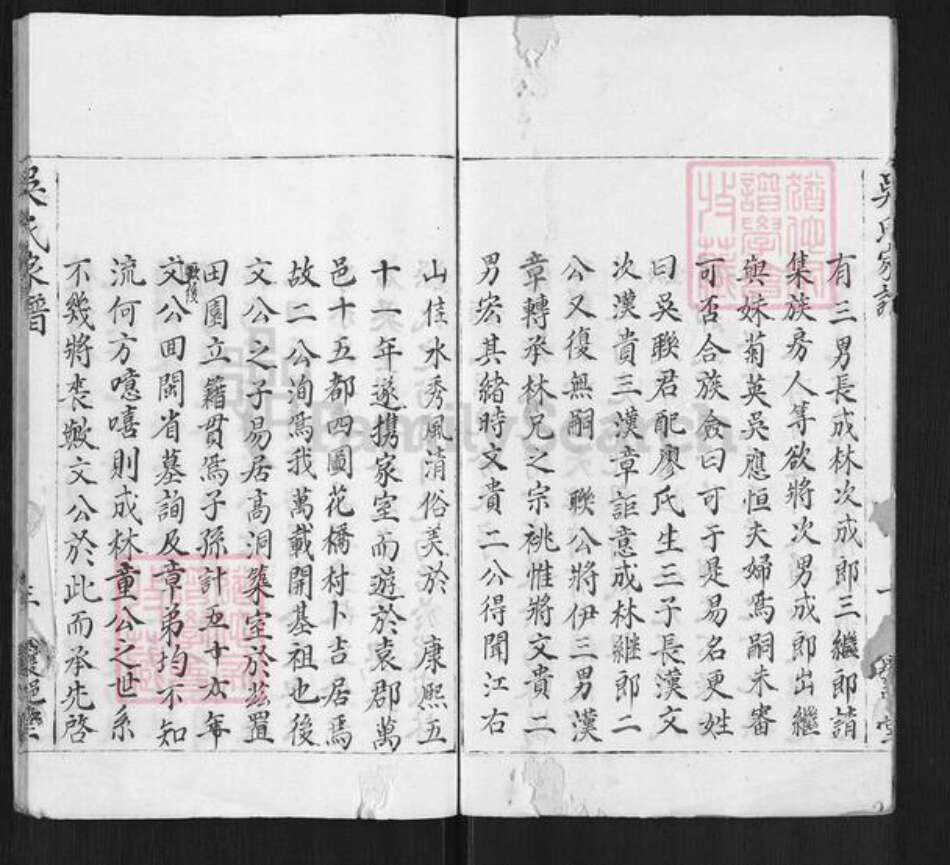 有三男長成林次成郎三繼郎請
集族房人等欲將次男成郎出繼
與妹菊英吳應恒夫婦為嗣未審
可否合族僉曰可于是易名更姓
曰吳聯君配廖氏生三子長漢文
次漢貴三漢章詎意成林繼郎二
公又復無嗣 聯公將伊三男漢
章轉承林兄之宗祧惟將文貴二
男宏其緒時文貴二公得聞江右
山佳水秀風清俗美於 康熙五
十一年遂携家室而遊於袁郡萬
邑十五都四圖花橋村卜吉居焉
故二公洵為我萬載開基祖也後
文公之子易居高洞築室於茲置
田園立籍貫焉子孫計五十六年
文公回閩省墓詢及章弟均不知
流何方噫嘻則成林童公之世系
不幾將喪歟文公於此而承先啓
吳氏家譜
FamilySearch